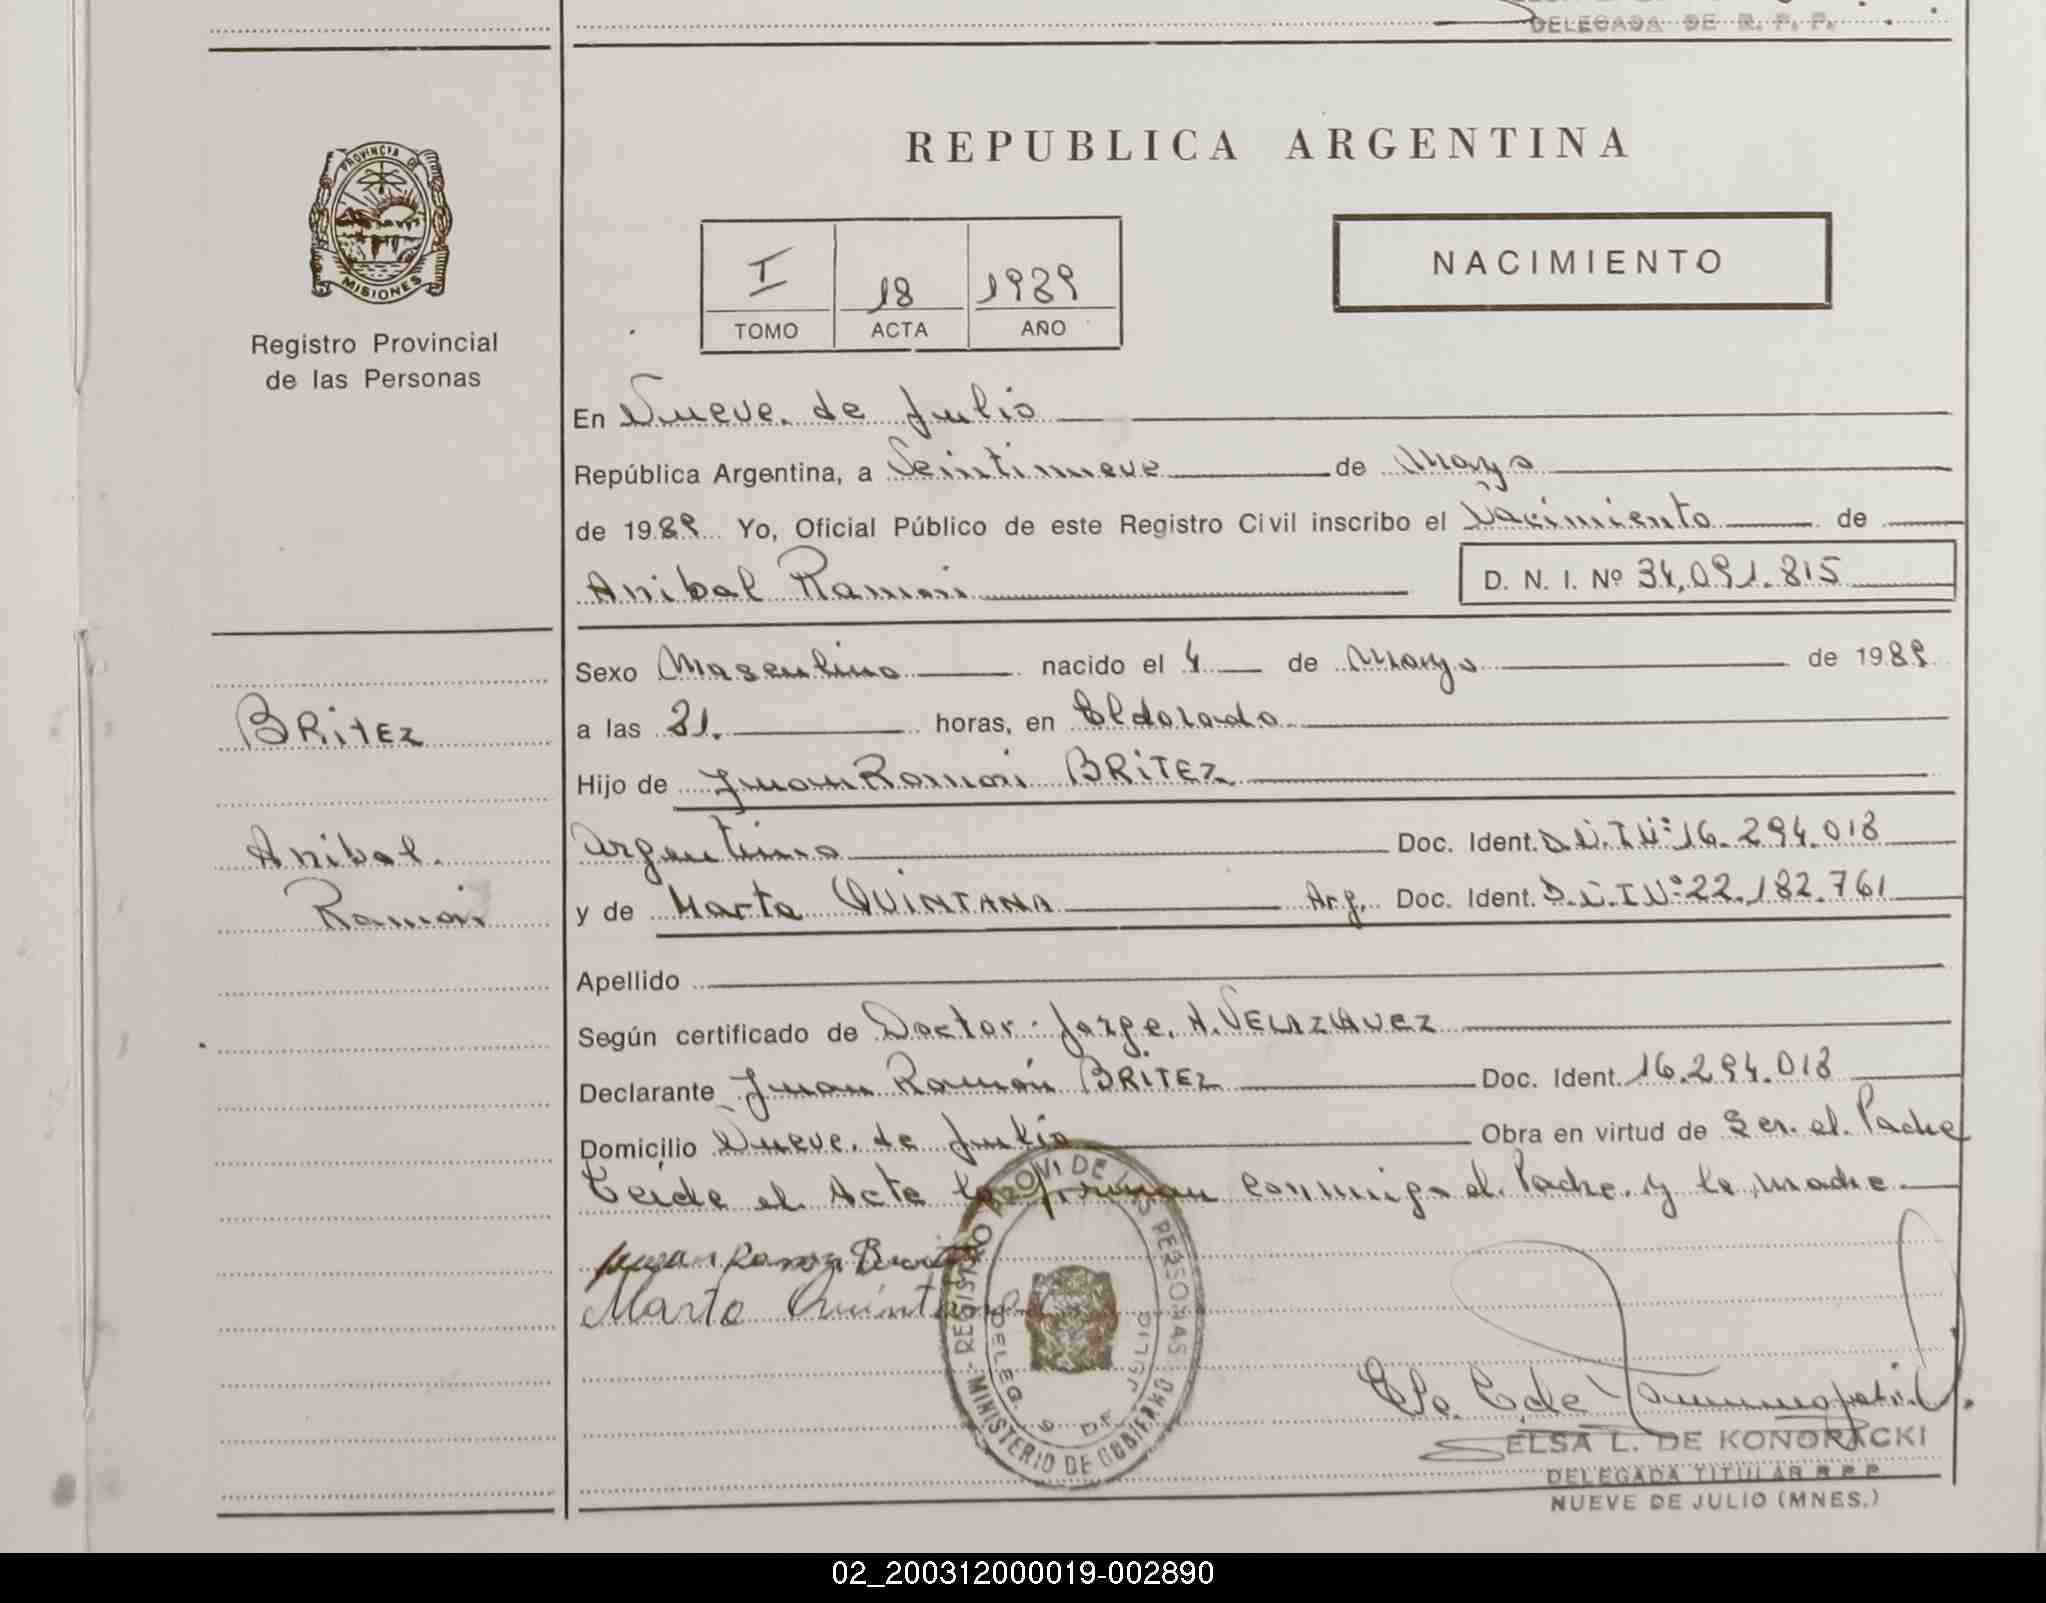 DELEGADA DE R. P. P.
PROVINCIA DE
MISIONES
Registro Provincial
de las Personas
REPUBLICA ARGENTINA
I 18 1989
TOMO ACTA AÑO
NACIMIENTO
En Nueve de Julio
República Argentina, a Veintinueve de Mayo
de 1989 Yo, Oficial Público de este Registro Civil inscribo el Nacimiento de
Anibal Ramón
D. N. I. Nº 34.091.815
Sexo Masculino nacido el 4 de Mayo de 1989
BRITEZ
a las 21. horas, en Eldorado
Hijo de Juan Ramón BRITEZ
Anibal
Argentino Doc. Ident. D.N.I Nº 16.294.018
Ramón
y de Marta QUINTANA Arg. Doc. Ident. D.N.I Nº 22.182.761
Apellido
Según certificado de Doctor Jorge. A. VELAZQUEZ
Declarante Juan Ramón BRITEZ Doc. Ident. 16.294.018
Domicilio Nueve de Julio Obra en virtud de Ser el Padre
Leida el Acta la firman conmigo el Padre y la madre
Juan Ramon Britez
Marta Quintana
REGISTRO PROV. DE LAS PERSONAS
MINISTERIO DE GOBIERNO
DELEG. 9 DE JULIO
ELSA L. DE KONORACKI
DELEGADA TITULAR R.P.P.
NUEVE DE JULIO (MNES.)
02_200312000019-002890